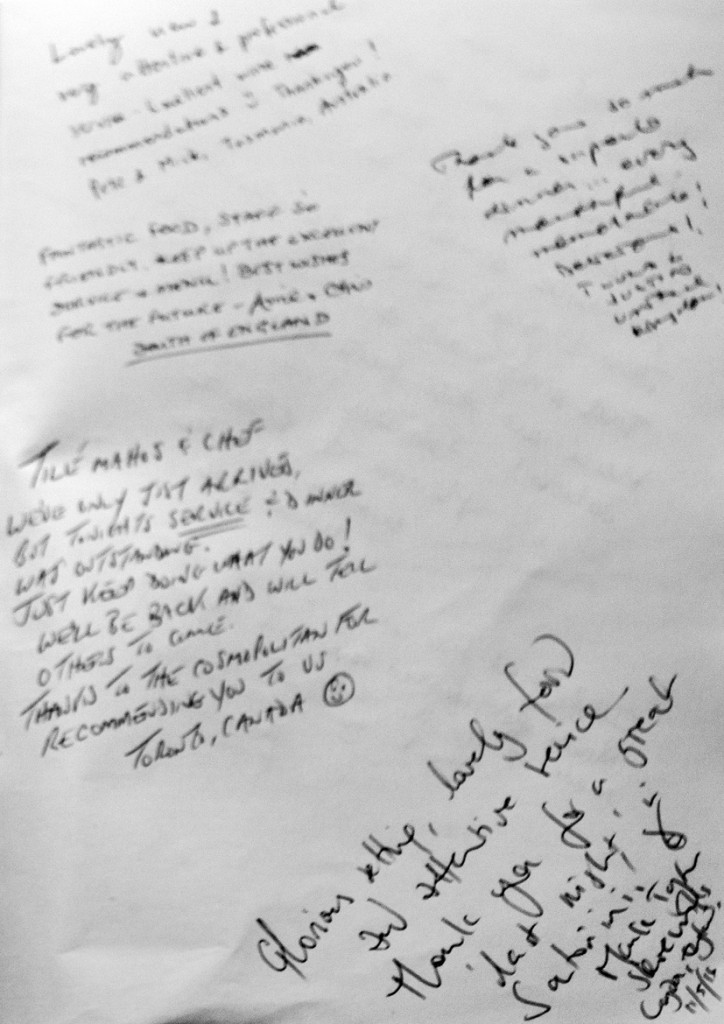 Lovely view &
very attentive & professional
service - Excellent wine
recommendations! Thankyou!
Pete & Mick, Tasmania, Australia
Thank you so much
for a superb
dinner... every
mouthful
memorable!
FANTASTIC FOOD, STAFF SO
FRIENDLY. KEEP UP THE EXCELLENT
SERVICE & MENU! BEST WISHES
FOR THE FUTURE -
SOUTH OF ENGLAND
& CHEF
WE'VE ONLY JUST ARRIVED,
BUT TONIGHTS SERVICE & DINNER
WAS OUTSTANDING.
JUST KEEP DOING WHAT YOU DO!
WE'LL BE BACK AND WILL TELL
OTHERS TO COME.
THANKS TO THE COSMOPOLITAN FOR
RECOMMENDING YOU TO US
TORONTO, CANADA
Glorious setting, lovely food
and attentive service
Thank you for a great
last night in
Santorini
Mark
11/5/16